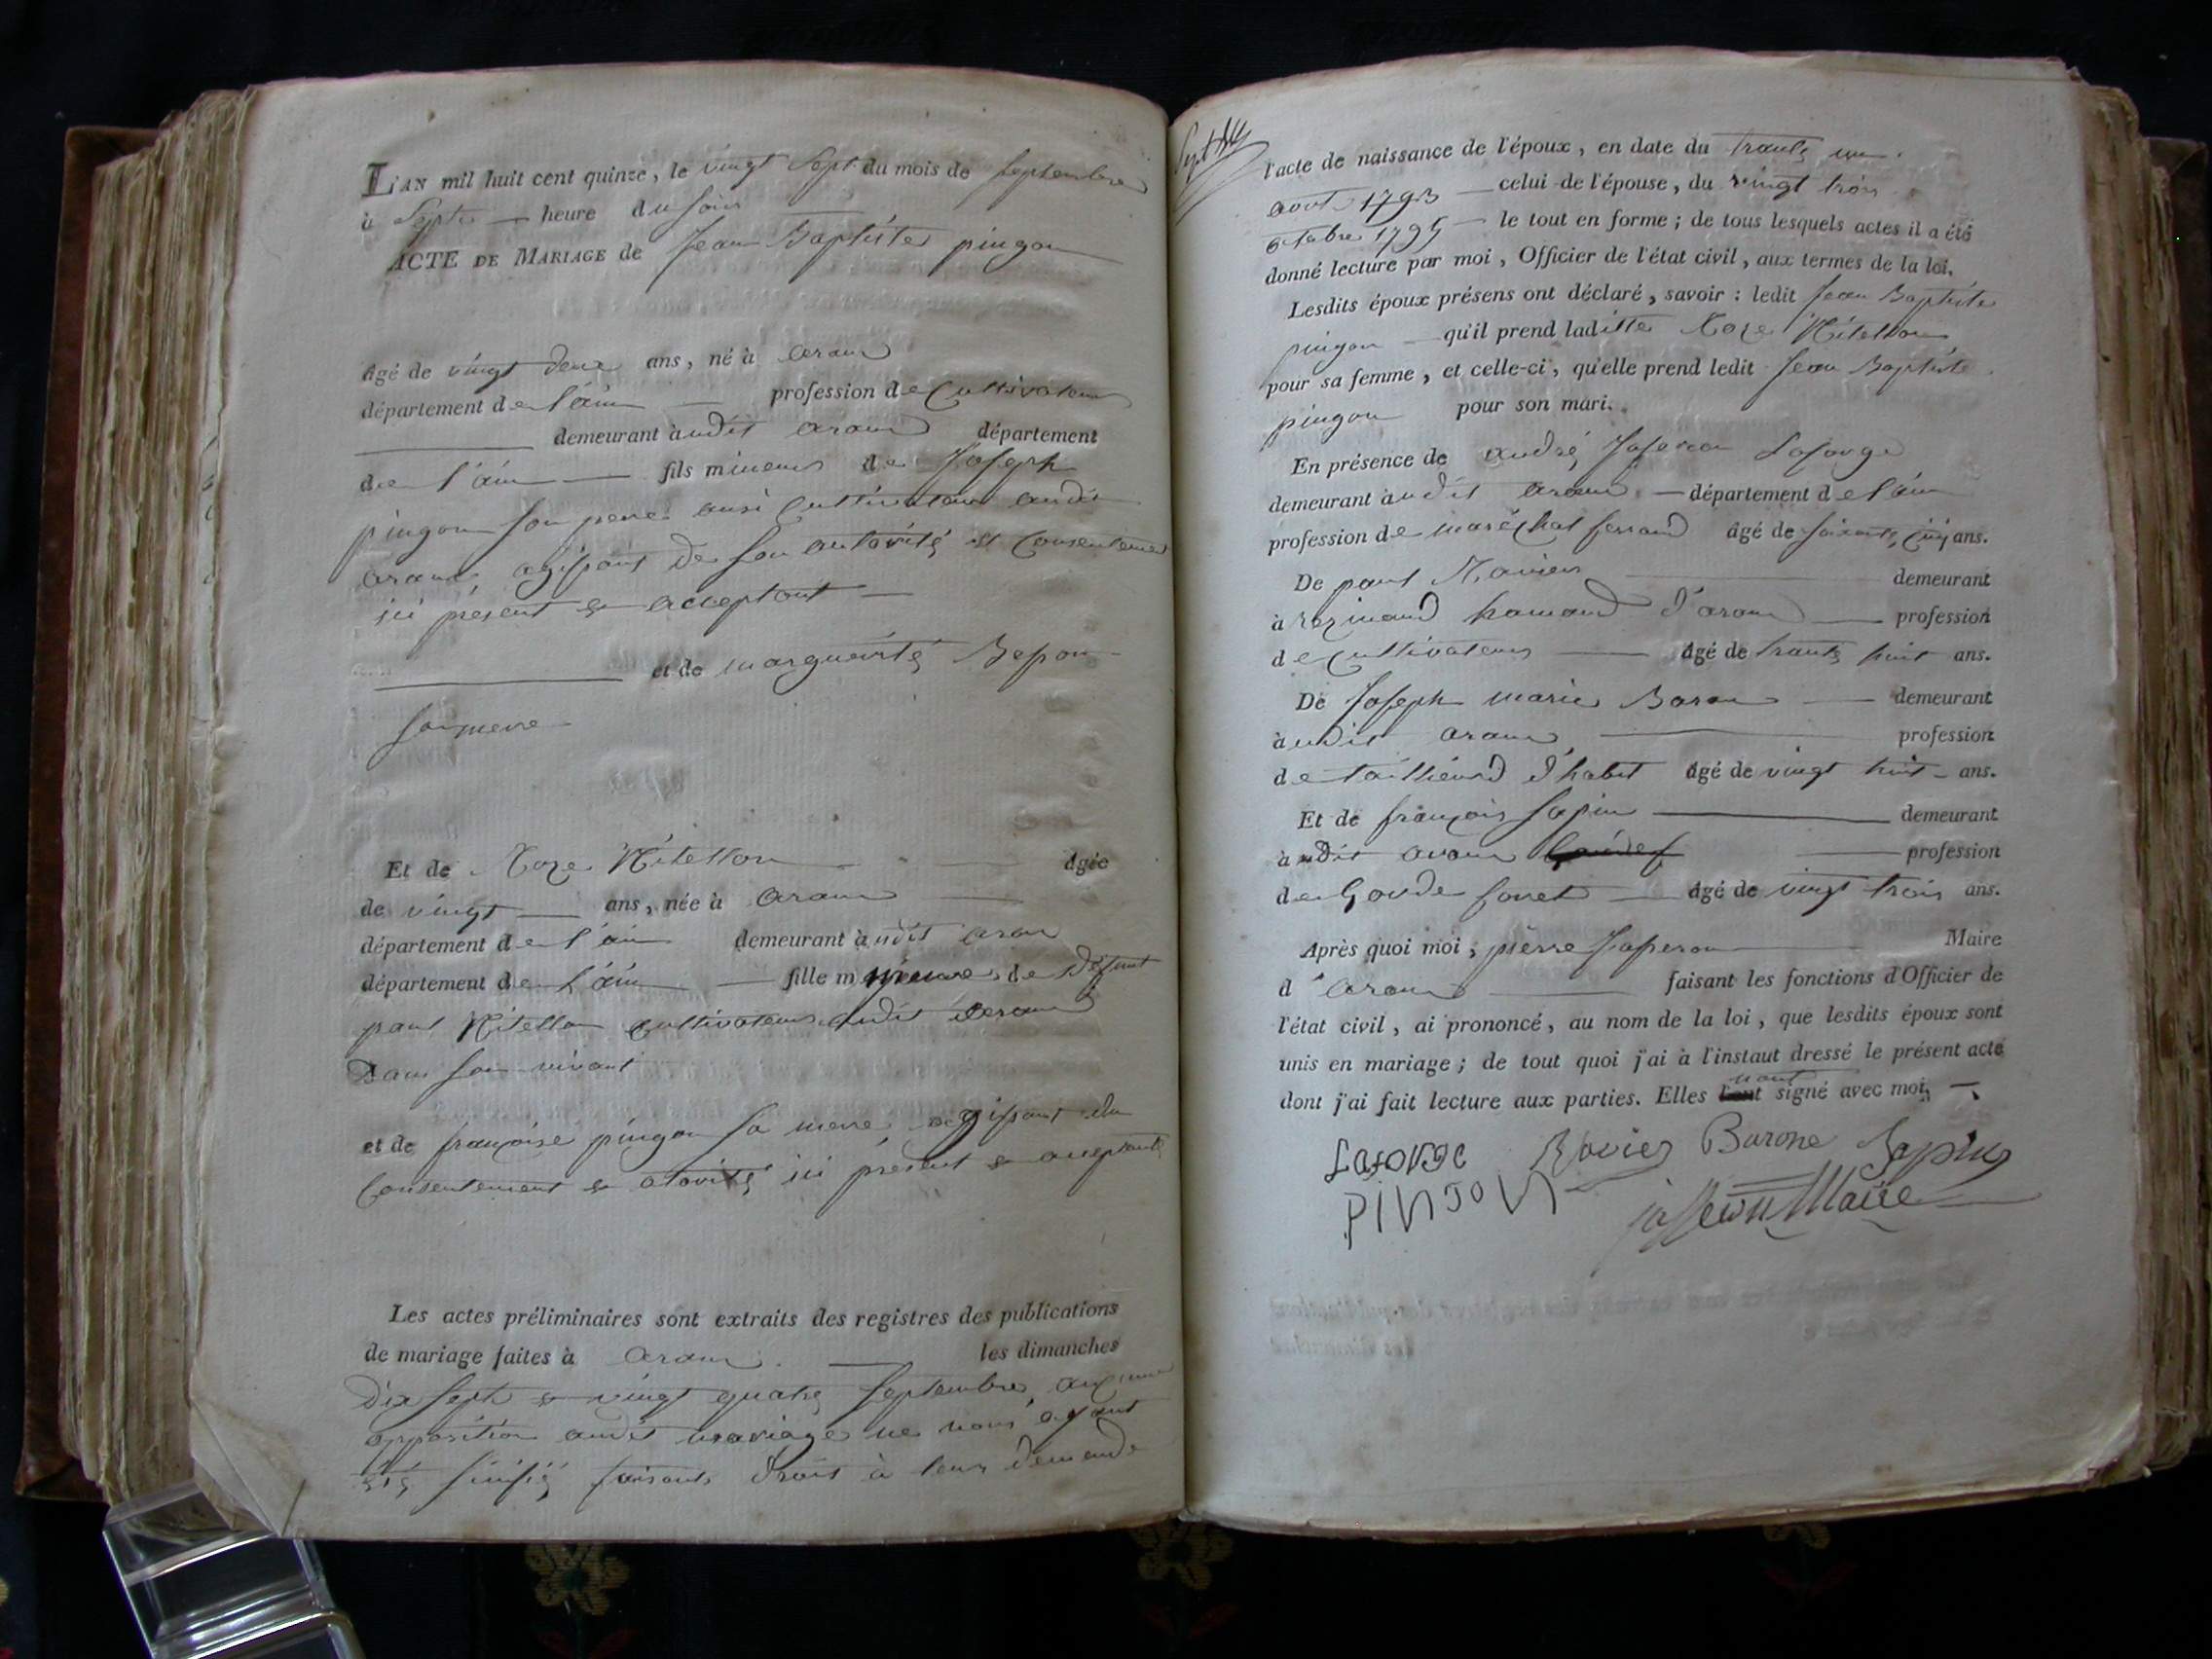 L'AN mil huit cent quinze, le vingt Sept du mois de Septembre
à Septe heure du soir
ACTE DE MARIAGE de Jean Baptiste pingon
âgé de vingt deux ans, né à aranc
département de l'ain profession de Cultivateur
demeurant àudit aranc département
de l'ain fils mineur de Joseph
pingon son pere ausi Cultivateur audit
aranc, agissant de son autorité et Consenteme
ici présent et acceptant
et de marguerite
son mere
Et de Roze âgée
de vingt ans, née à aranc
département de l'ain demeurant àudit aran
département de l'ain fille mineure de défunt
paul cultivateur audit aranc
Dans son vivant
et de françoise pingon sa mere, agissant du
Consentement et ici présent et aceptante
Les actes préliminaires sont extraits des registres des publications
de mariage faites à aranc les dimanches
dix sept et vingt quatre septembre, aucune
opposition audit mariage ne nous ayant
été faisant droit à leur demande
l'acte de naissance de l'époux, en date du trante un
aout 1793 celui de l'épouse, du vingt trois
octobre 1795 le tout en forme ; de tous lesquels actes il a été
donné lecture par moi, Officier de l'état civil, aux termes de la loi.
Lesdits époux présens ont déclaré, savoir : ledit Jean Baptiste
pingon qu'il prend laditte Roze
pour sa femme, et celle-ci, qu'elle prend ledit Jean Baptiste
pingon pour son mari.
En présence de andré Laforge
demeurant àudit aranc département de l'ain
profession de maréchal ferrand âgé de soixante cinq ans.
De paul demeurant
à hamaud d'aranc profession
de Cultivateur âgé de trante huit ans.
De Joseph marie Baron demeurant
àudit aranc profession
de taillieurd d'habit âgé de vingt huit ans.
Et de françois Sapin demeurant
àudit aranc profession
de Garde foret âgé de vingt trois ans.
Après quoi moi, pierre Maire
d'aranc faisant les fonctions d'Officier de
l'état civil, ai prononcé, au nom de la loi, que lesdits époux sont
unis en mariage ; de tout quoi j'ai à l'instant dressé le présent acte
dont j'ai fait lecture aux parties. Elles l'ont signé avec moi,
nont
Laforge Ravier Barone Sapin
PINGON Maire